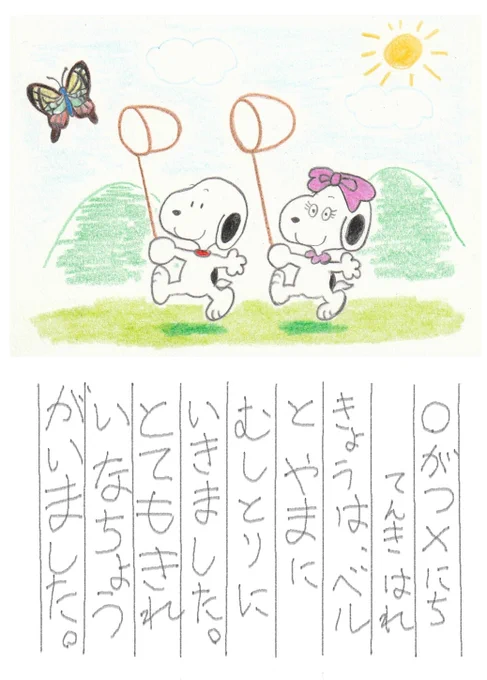 〇がつ×にち
てんき はれ
きょうは、ベル
と やまに
むしとりに
いきました。
とてもきれ
いなちょう
がいました。